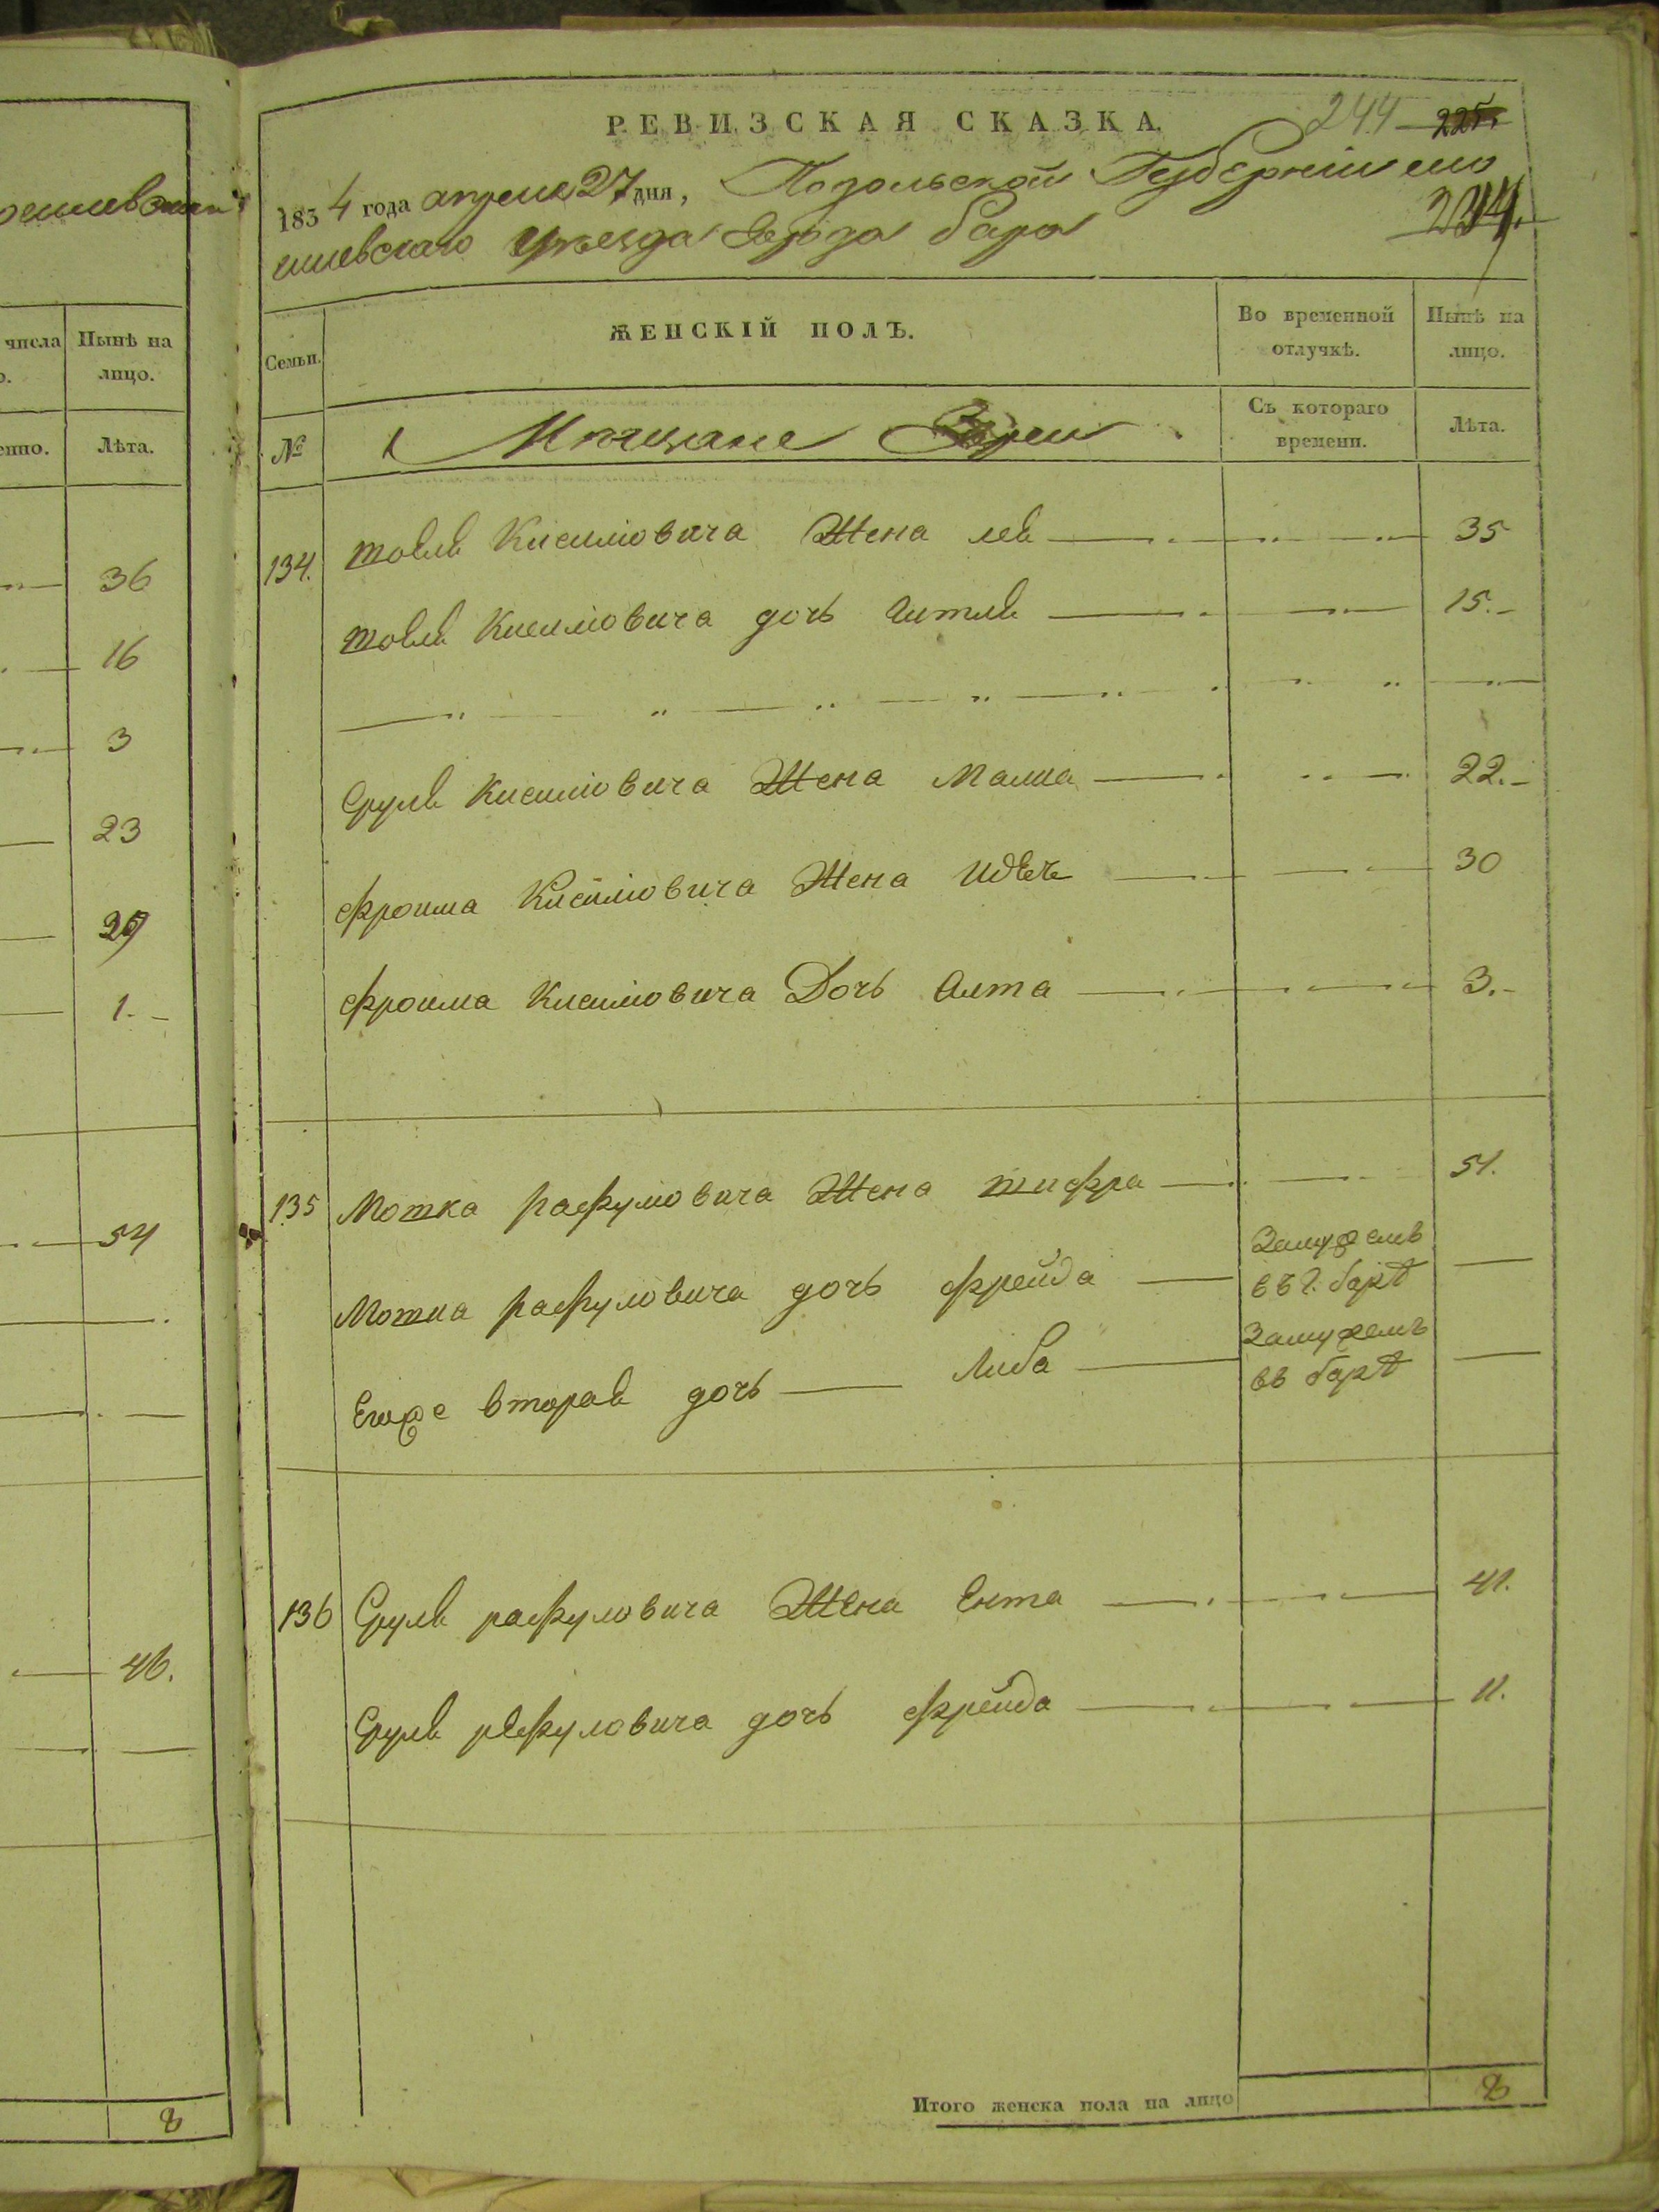 РЕВИЗСКАЯ СКАЗКА.
244 225.
1834 года апреля 27 дня, Подольской Губерніи мо
224.
гилевскаго Уѣзда Города бара
Семьи.
ЖЕНСКІЙ ПОЛЪ.
Во временной отлучкѣ.
Нынѣ на лицо.
№
Мѣщане Евреи
Съ котораго времени.
Лѣта.
134. товия Кисилiовича Жена лея 35
товия Кисилiовича дочь Гитля 15.
Сруля Кисилiовича Жена Малка 22.
Фроима Кисилiовича Жена 30
Фроима Кисилiовича Дочь Алта 3.
135 Мотка рафуловича Жена шифра 51.
Мотка рафуловича дочь фрейда Замужемъ
въ г. барѣ
Егоже вторая дочь Либа Замужемъ
въ барѣ
136 Сруля рафуловича Жена Ента 41.
Сруля рафуловича дочь фрейда 11.
Итого женска пола на лицо 8
числа
Нынѣ на лицо.
Лѣта.
36
16
3
23
1.
54
46.
8